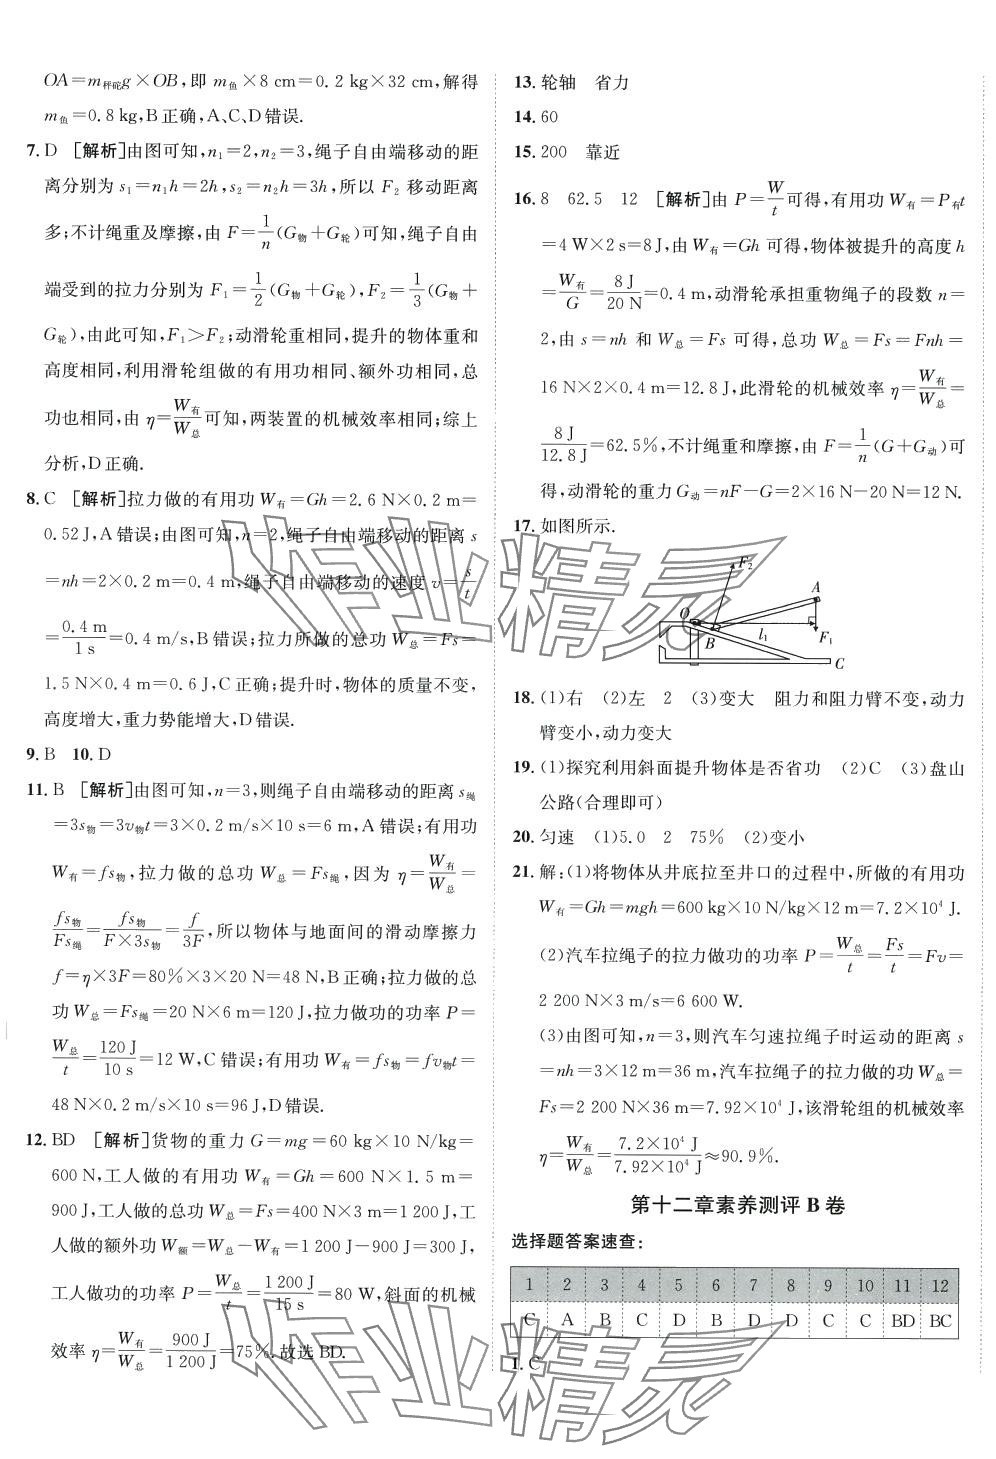 OA=m秤砣g×OB,即 m鱼×8 cm=0.2 kg×32 cm,解得
m鱼=0.8 kg,B正确,A、C、D错误.
7. D [解析]由图可知,n₁=2,n₂=3,绳子自由端移动的距
离分别为 s₁=n₁h=2h,s₂=n₂h=3h,所以 F₂ 移动距离
多;不计绳重及摩擦,由 F=1/n(G物+G轮)可知,绳子自由
端受到的拉力分别为 F₁=1/2(G物+G轮),F₂=1/3(G物+
G轮),由此可知,F₁>F₂;动滑轮重相同,提升的物体重和
高度相同,利用滑轮组做的有用功相同、额外功相同,总
功也相同,由 η=W有/W总可知,两装置的机械效率相同;综上
分析,D正确.
8. C [解析]拉力做的有用功W有=Gh=2.6 N×0.2 m=
0.52 J,A错误;由图可知,n=2,绳子自由端移动的距离 s
=nh=2×0.2 m=0.4 m,绳子自由端移动的速度 v=s/t
=0.4 m/1 s=0.4 m/s,B错误;拉力所做的总功 W总=Fs=
1.5 N×0.4 m=0.6 J,C正确;提升时,物体的质量不变,
高度增大,重力势能增大,D错误.
9. B 10. D
11. B [解析]由图可知,n=3,则绳子自由端移动的距离 s绳
=3s物=3v物t=3×0.2 m/s×10 s=6 m,A错误;有用功
W有=fs物,拉力做的总功 W总=Fs绳,因为 η=W有/W总=
fs物/Fs绳=fs物/F×3s物=f/3F,所以物体与地面间的滑动摩擦力
f=η×3F=80%×3×20 N=48 N,B正确;拉力做的总
功W总=Fs绳=20 N×6 m=120 J,拉力做功的功率 P=
W总/t=120 J/10 s=12 W,C错误;有用功W有=fs物=fv物t=
48 N×0.2 m/s×10 s=96 J,D错误.
12. BD [解析]货物的重力 G=mg=60 kg×10 N/kg=
600 N,工人做的有用功 W有=Gh=600 N×1.5 m=
900 J,工人做的总功 W总=Fs=400 N×3 m=1 200 J,工
人做的额外功 W额=W总-W有=1 200 J-900 J=300 J,
工人做功的功率 P=W总/t=1 200 J/15 s=80 W,斜面的机械
效率 η=W有/W总=900 J/1 200 J=75%.故选BD.
13. 轮轴 省力
14. 60
15. 200 靠近
16. 8 62.5 12 [解析]由 P=W/t可得,有用功 W有=P有t
=4 W×2 s=8 J,由 W有=Gh 可得,物体被提升的高度 h
=W有/G=8 J/20 N=0.4 m,动滑轮承担重物绳子的段数 n=
2,由 s=nh 和 W总=Fs 可得,总功 W总=Fs=Fnh=
16 N×2×0.4 m=12.8 J,此滑轮的机械效率 η=W有/W总=
8 J/12.8 J=62.5%,不计绳重和摩擦,由 F=1/n(G+G动)可
得,动滑轮的重力 G动=nF-G=2×16 N-20 N=12 N.
17. 如图所示.
F₂
A
O
l₁
B
F₁
C
18. (1)右 (2)左 2 (3)变大 阻力和阻力臂不变,动力
臂变小,动力变大
19. (1)探究利用斜面提升物体是否省功 (2)C (3)盘山
公路(合理即可)
20. 匀速 (1)5.0 2 75% (2)变小
21. 解:(1)将物体从井底拉至井口的过程中,所做的有用功
W有=Gh=mgh=600 kg×10 N/kg×12 m=7.2×10⁴ J.
(2)汽车拉绳子的拉力做功的功率 P=W总/t=Fs/t=Fv=
2 200 N×3 m/s=6 600 W.
(3)由图可知,n=3,则汽车匀速拉绳子时运动的距离 s
=nh=3×12 m=36 m,汽车拉绳子的拉力做的功 W总=
Fs=2 200 N×36 m=7.92×10⁴ J,该滑轮组的机械效率
η=W有/W总=7.2×10⁴ J/7.92×10⁴ J≈90.9%.
第十二章素养测评B卷
选择题答案速查:
1 2 3 4 5 6 7 8 9 10 11 12
C A B C D B D D C C BD BC
1. C
作业精灵
作业精灵